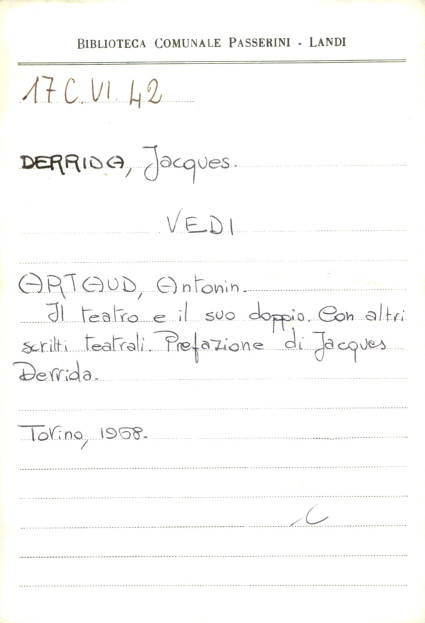 BIBLIOTECA COMUNALE PASSERINI - LANDI
17 C. VI. 42
DERRIDA, Jacques.
VEDI
ARTAUD, Antonin.
Il teatro e il suo doppio. Con altri
scritti teatrali. Prefazione di Jacques
Derrida.
Torino, 1968.